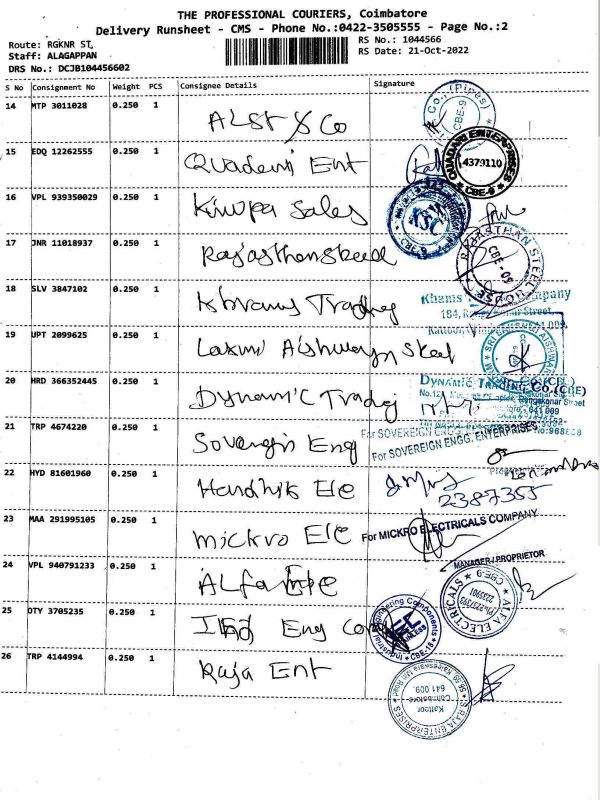 THE PROFESSIONAL COURIERS, Coimbatore
Delivery Runsheet - CMS - Phone No.:0422-3505555 - Page No.:2
Route: RGKNR ST,
Staff: ALAGAPPAN
DRS No.: DCJB104456602
RS No.: 1044566
RS Date: 21-Oct-2022
S No Consignment No Weight PCS Consignee Details Signature
14 MTP 3011028 0.250 1
Co., (Pipes) CBE-9
15 EDQ 12262555 0.250 1 Quadeni Ent
QUADARI ENTERPRISES 4379110 CBE-9
16 VPL 939350029 0.250 1 Kirupa Sales
KSC
17 JNR 11018937 0.250 1 Rajasthan Steel
RAJASTHAN STEEL HOUSE CBE-09
18 SLV 3847102 0.250 1 Trading
184,
19 UPT 2099625 0.250 1 Laxmi Aishwarya Steel
SRI LAKSHMI AISHWAR
20 HRD 366352445 0.250 1 Dynamic Trading
DYNAMIC TRADING Co.(CBE)
21 TRP 4674220 0.250 1 Soveregn Eng
For SOVEREIGN ENGG. ENTERPRISES
For SOVEREIGN ENGG. ENTERPRISES
22 HYD 81601960 0.250 1 Ele
2387355
23 MAA 291995105 0.250 1 Mickro Ele
For MICKRO ELECTRICALS COMPANY
MANAGER / PROPRIETOR
24 VPL 940791233 0.250 1
ALFA ELECTRICALS CBE-9
25 OTY 3705235 0.250 1 Eng
Engineering Components Industry IEC CBE-18
26 TRP 4144994 0.250 1 Raja Ent
RAJA ENTERPRISES Kattoor Coimbatore 641 009.